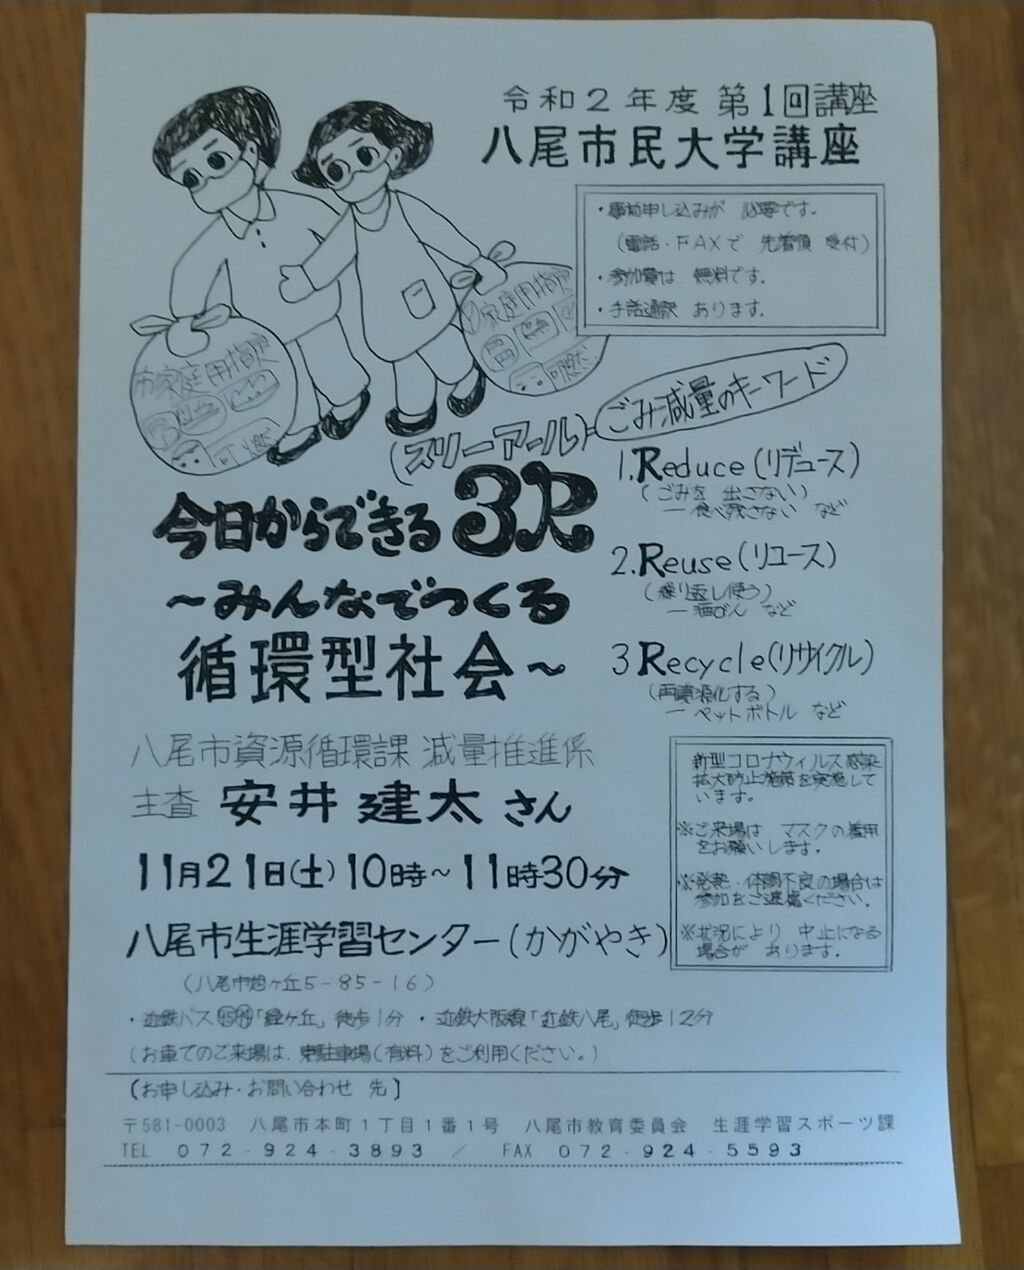 令和2年度 第1回講座
八尾市民大学講座
・事前申し込みが 必要です。
(電話・FAXで 先着順 受付)
・参加費は 無料です。
・手話通訳 あります。
市家庭用指定
可燃
家庭用指定
可燃
ごみ減量のキーワード
(スリーアール)
今日からできる 3R
～みんなでつくる
循環型社会～
1.Reduce(リデュース)
(ごみを 出さない)
― 食べ残さない など
2.Reuse(リユース)
(繰り返し使う)
― 酒びん など
3 Recycle(リサイクル)
(再資源化する)
― ペットボトル など
八尾市資源循環課 減量推進係
主査 安井 建太 さん
11月21日(土)10時～11時30分
八尾市生涯学習センター(かがやき)
(八尾市旭ヶ丘5-85-16)
新型コロナウィルス感染
拡大防止施策を実施して
います。
※ご来場は マスクの着用
をお願いします。
※発熱・体調不良の場合は
参加をご遠慮ください。
※状況により 中止になる
場合が あります。
・近鉄バス「緑ヶ丘」徒歩1分 ・近鉄大阪線「近鉄八尾」徒歩12分
(お車でのご来場は、東駐車場(有料)をご利用ください。)
〔お申し込み・お問い合わせ 先〕
〒581-0003 八尾市本町1丁目1番1号 八尾市教育委員会 生涯学習スポーツ課
TEL 072-924-3893 / FAX 072-924-5593